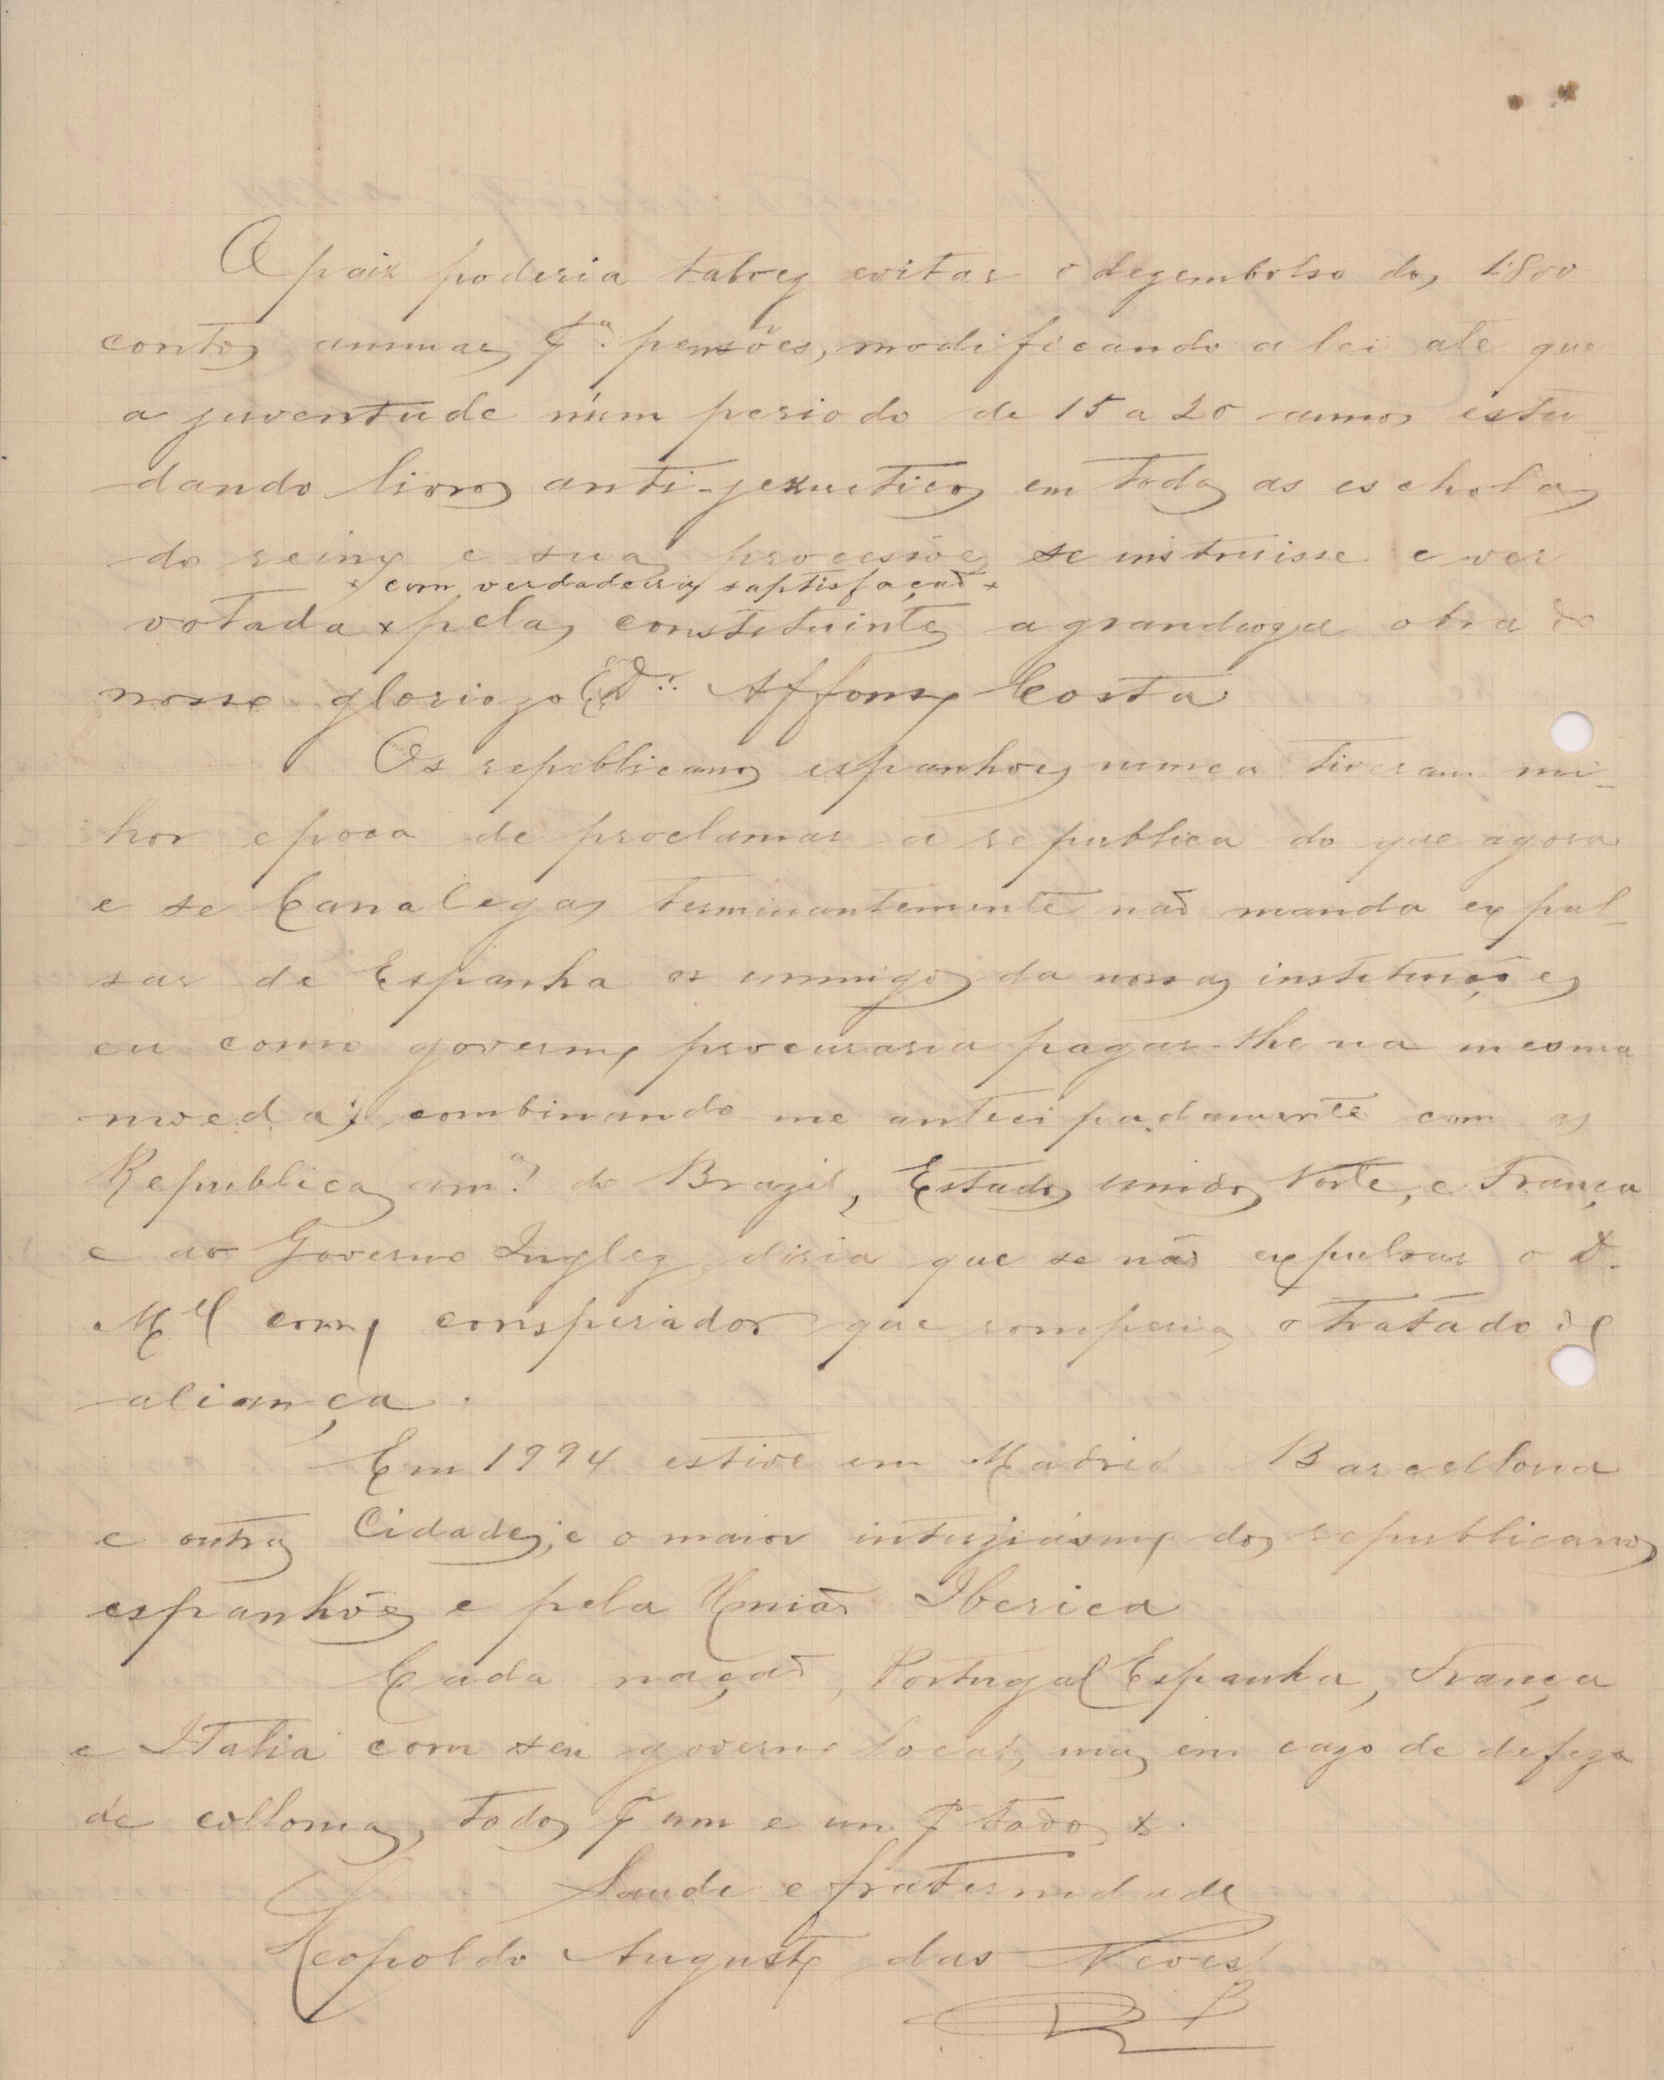 O paiz poderia talvez evitar o dezembolso dos 1:800
contos annuaes pª. pensões, modificando a lei ate que
a juventude n'um periodo de 15 a 20 annos estu-
dando livros anti-jezuiticos em todas as escholas
do reino e sua se instruisse e ver
x com verdadeira saptisfação x
votada x pelas constituintes a grandioza obra do
nosso gloriozo Exº. Dr. Affonso Costa
Os republicanos espanhoes nunca tiveram mi-
lhor epoca de proclamar a republica do que agora
e se Canalegas terminantemente não manda expul-
sar de Espanha os inimigos da nossas instituições
eu como governo, procuraria pagar-lhe na mesma
moeda; combinando me antecipadamente com as
Republicas amª. do Brazil, Estados unidos Norte, e França
e ao Governo Inglez diria que se não expulsar o D.
Mel como conspirador que romperia o tratado de
aliança.
Em 1994 estive em Madrid Barcellona
e outras Cidades; e o maior intuziásmo dos republicanos
espanhões e pela União Iberica
Cada nação, Portugal Espanha, França
e Italia com seu governo local, mas em cazo de defeza
de collonias, todos pr um e um pr todos x.
Saude e fraternidade
Leopoldo Augusto das Neves